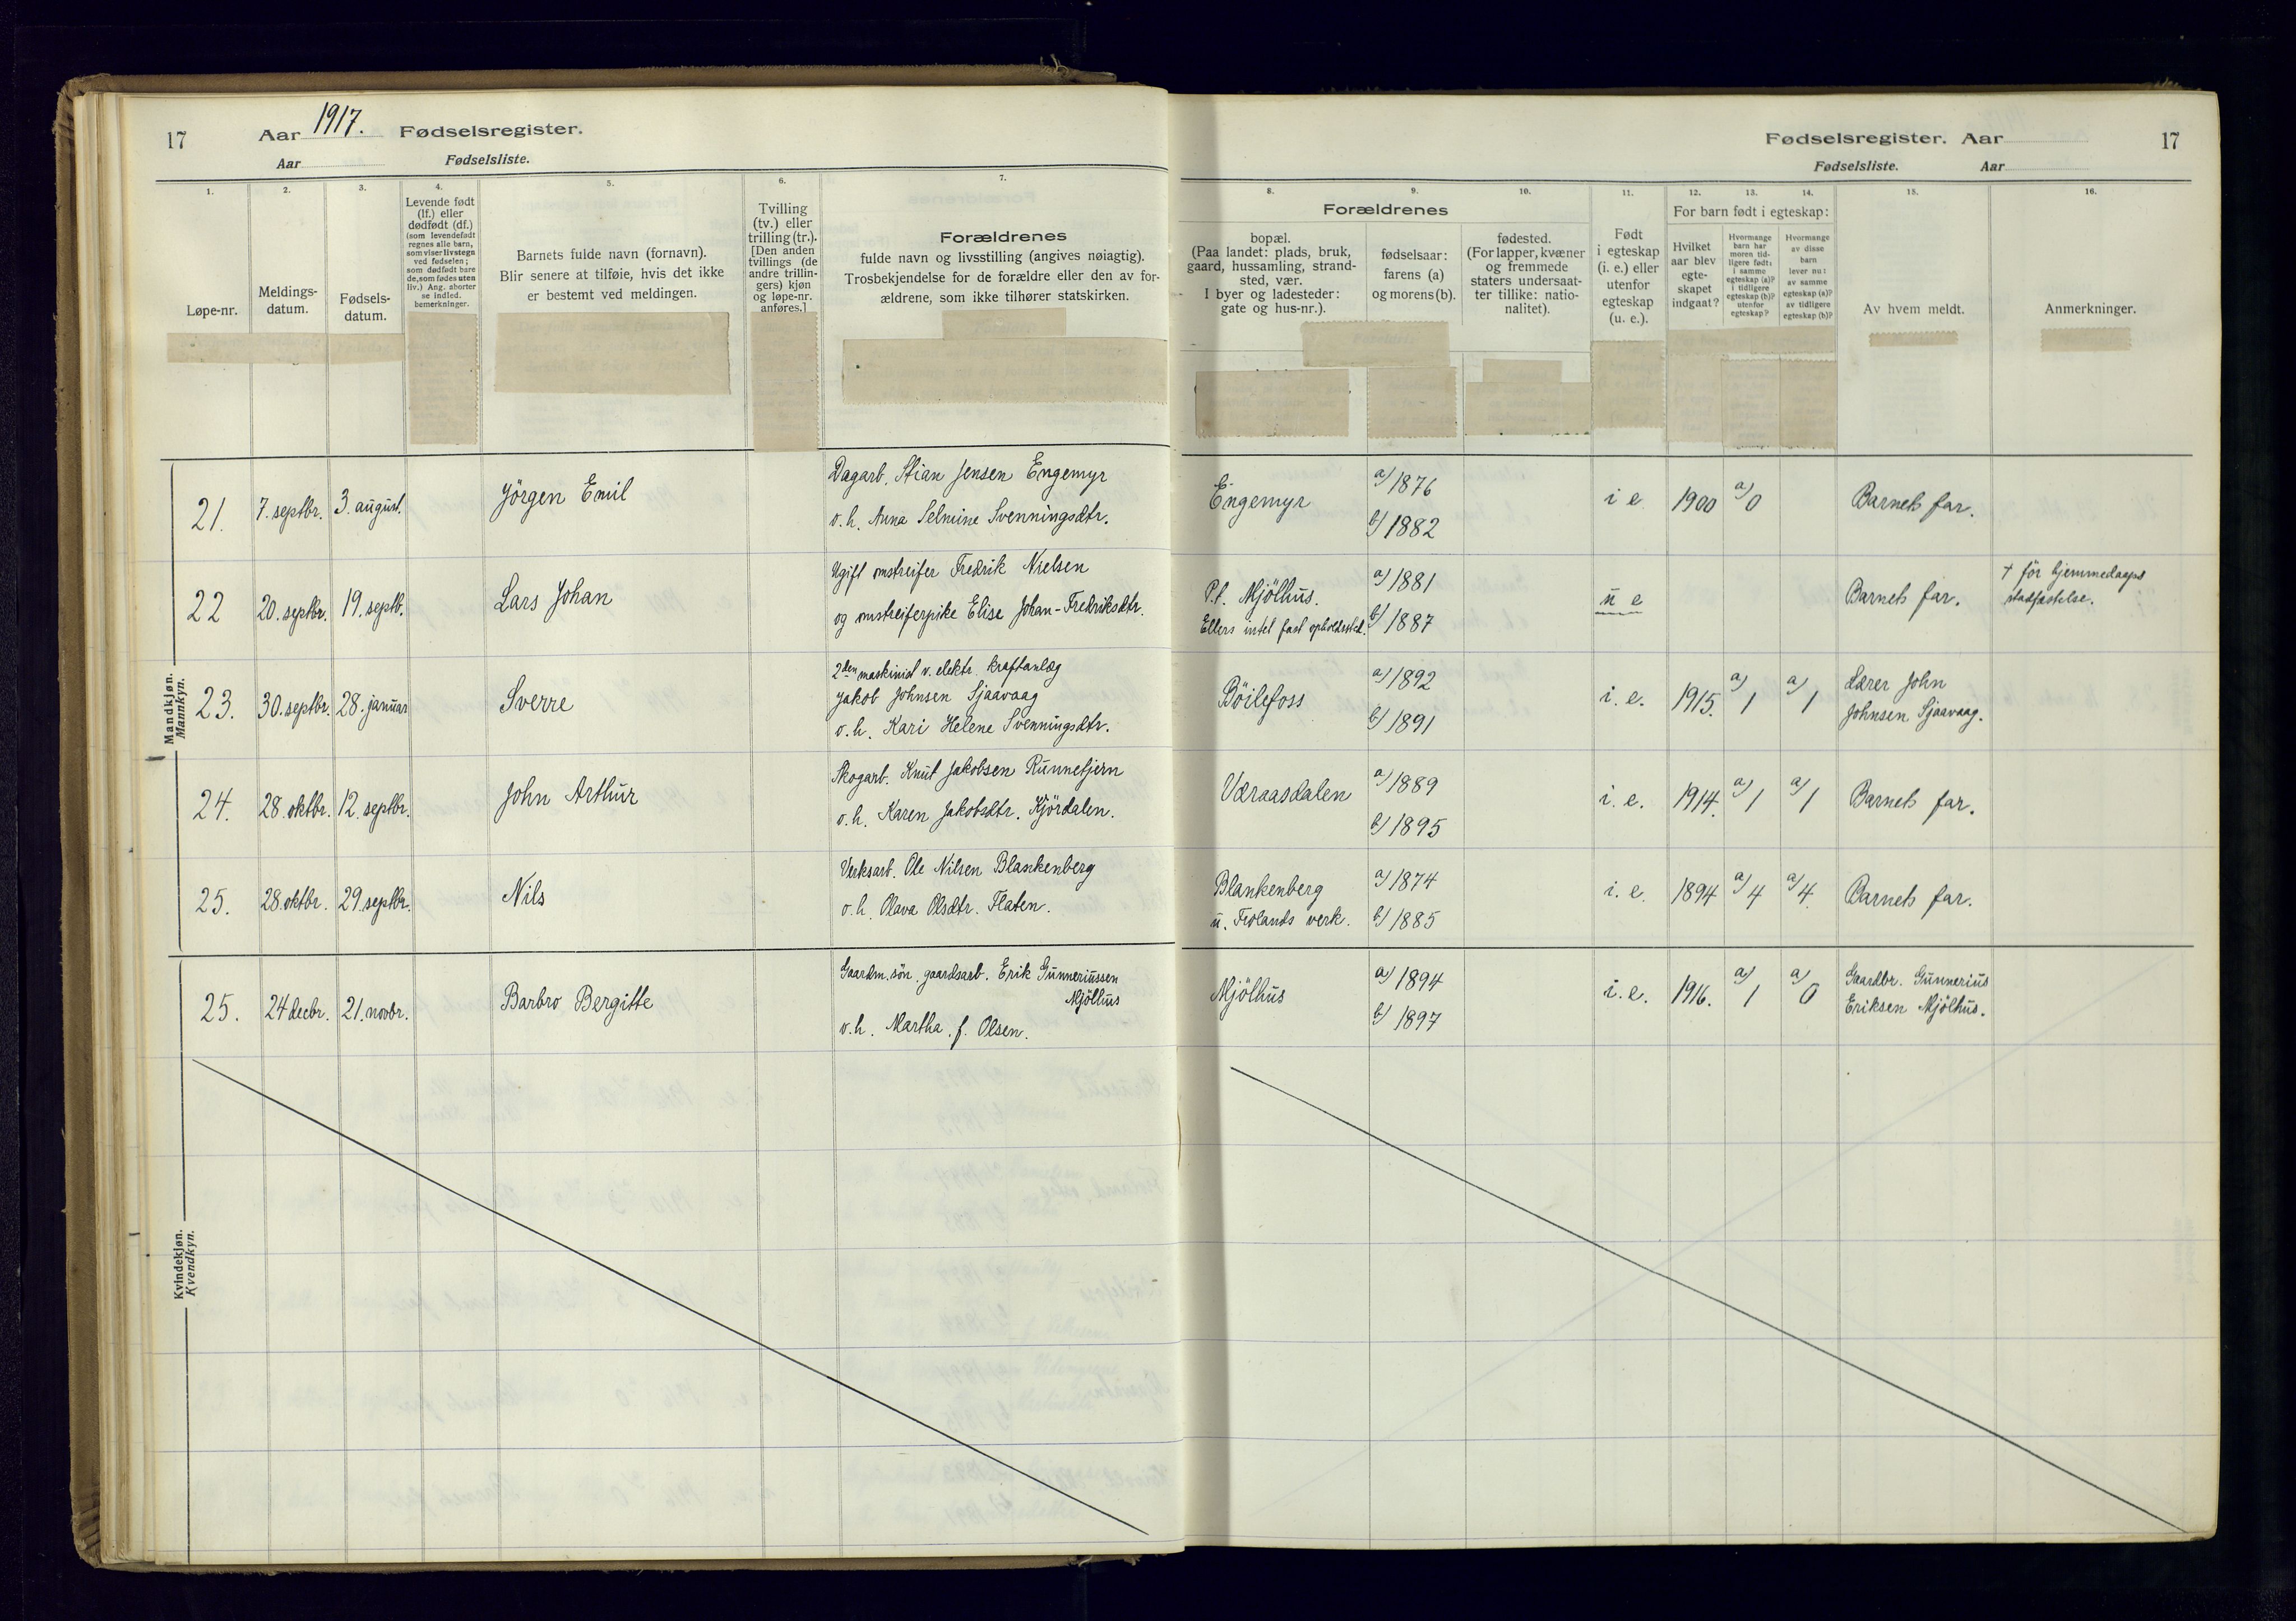 17 Aar 1917. Fødselsregister.
Aar Fødselsliste.
1. 2. 3. 4. 5. 6. 7.
Løpe-nr.
Meldings-
datum.
Fødsels-
datum.
Levende født
(lf.) eller
dødfødt (df.)
(som levendefødt
regnes alle barn,
som viser livstegn
ved fødselen;
som dødfødt bare
de, som fødes uten
liv.) Ang. aborter
se indled.
bemerkninger.
Barnets fulde navn (fornavn).
Blir senere at tilføie, hvis det ikke
er bestemt ved meldingen.
Tvilling
(tv.) eller
trilling (tr.).
[Den anden
tvillings (de
andre trillin-
gers) kjøn
og løpe-nr.
anføres.]
Forældrenes
fulde navn og livsstilling (angives nøiagtig).
Trosbekjendelse for de forældre eller den av for-
ældrene, som ikke tilhører statskirken.
Mandkjøn.
Mannkyn.
21. 7. septbr. 3. august. Jörgen Emil
Dagarb. Stian Jensen Engemyr
o. h. Anna Selmine Svenningsdtr.
22 20. septbr. 19. septb. Lars Johan
Ugift omstreifer Fredrik Nielsen
og omstreiferpike Elise Johan-Fredriksdtr.
23. 30. septbr. 28. januar Sverre
2den maskinist v. elektr. kraftanlæg
Jakob Johnsen Sjaavaag
o. h. Kari Helene Svenningsdtr.
24. 28. oktbr. 12. septbr. John Arthur
Skogarb. Knut Jakobsen Runnetjern
o. h. Karen Jakobsdtr. Kjördalen.
25. 28. oktbr. 29. septbr. Nils
Verksarb. Ole Nilsen Blankenberg
o. h. Olava Olsdtr. Flaten.
Kvindekjøn.
Kvendkyn.
25. 24 decbr. 21. novbr. Barbro Bergitte
Gaardm. sön, gaardsarb. Erik Gunneriussen
Mjölhus
o. h. Martha, f. Olsen.
Fødselsregister. Aar 17
Fødselsliste. Aar
8. 9. 10. 11. 12. 13. 14. 15. 16.
Forældrenes
bopæl.
(Paa landet: plads, bruk,
gaard, hussamling, strand-
sted, vær.
I byer og ladesteder:
gate og hus-nr.).
fødselsaar:
farens (a)
og morens (b).
fødested.
(For lapper, kvæner
og fremmede
staters undersaat-
ter tillike: natio-
nalitet).
Født
i egteskap
(i. e.) eller
utenfor
egteskap
(u. e.).
For barn født i egteskap:
Hvilket
aar blev
egte-
skapet
indgaat?
Hvormange
barn har
moren tid-
ligere født:
i samme
egteskap (a)?
i tidligere
egteskap (b)?
utenfor
egteskap?
Hvormange
av disse
barn
lever nu:
av samme
egteskap (a)?
av tidligere
egteskap (b)?
Av hvem meldt.
Anmerkninger.
Engemyr a) 1876 b) 1882 i e 1900 a) 0 Barnets far.
P.t. Mjölhus.
Ellers intet fast opholdssted.
a) 1881 b) 1887 u e Barnets far.
† för hjemmedaaps
stadfæstelse.
Böilefoss a) 1892 b) 1891 i. e. 1915. a) 1 a) 1
Lærer John
Johnsen Sjaavaag.
Væraasdalen a) 1889 b) 1895 i. e. 1914. a) 1 a) 1 Barnets far.
Blankenberg
u. Frolands verk.
a) 1874 b) 1885 i. e. 1894 a) 4 a) 4. Barnets far.
Mjölhus a) 1894 b) 1897 i. e. 1916. a) 1 a) 0
Gaardbr. Gunnerius
Eriksen Mjölhus.